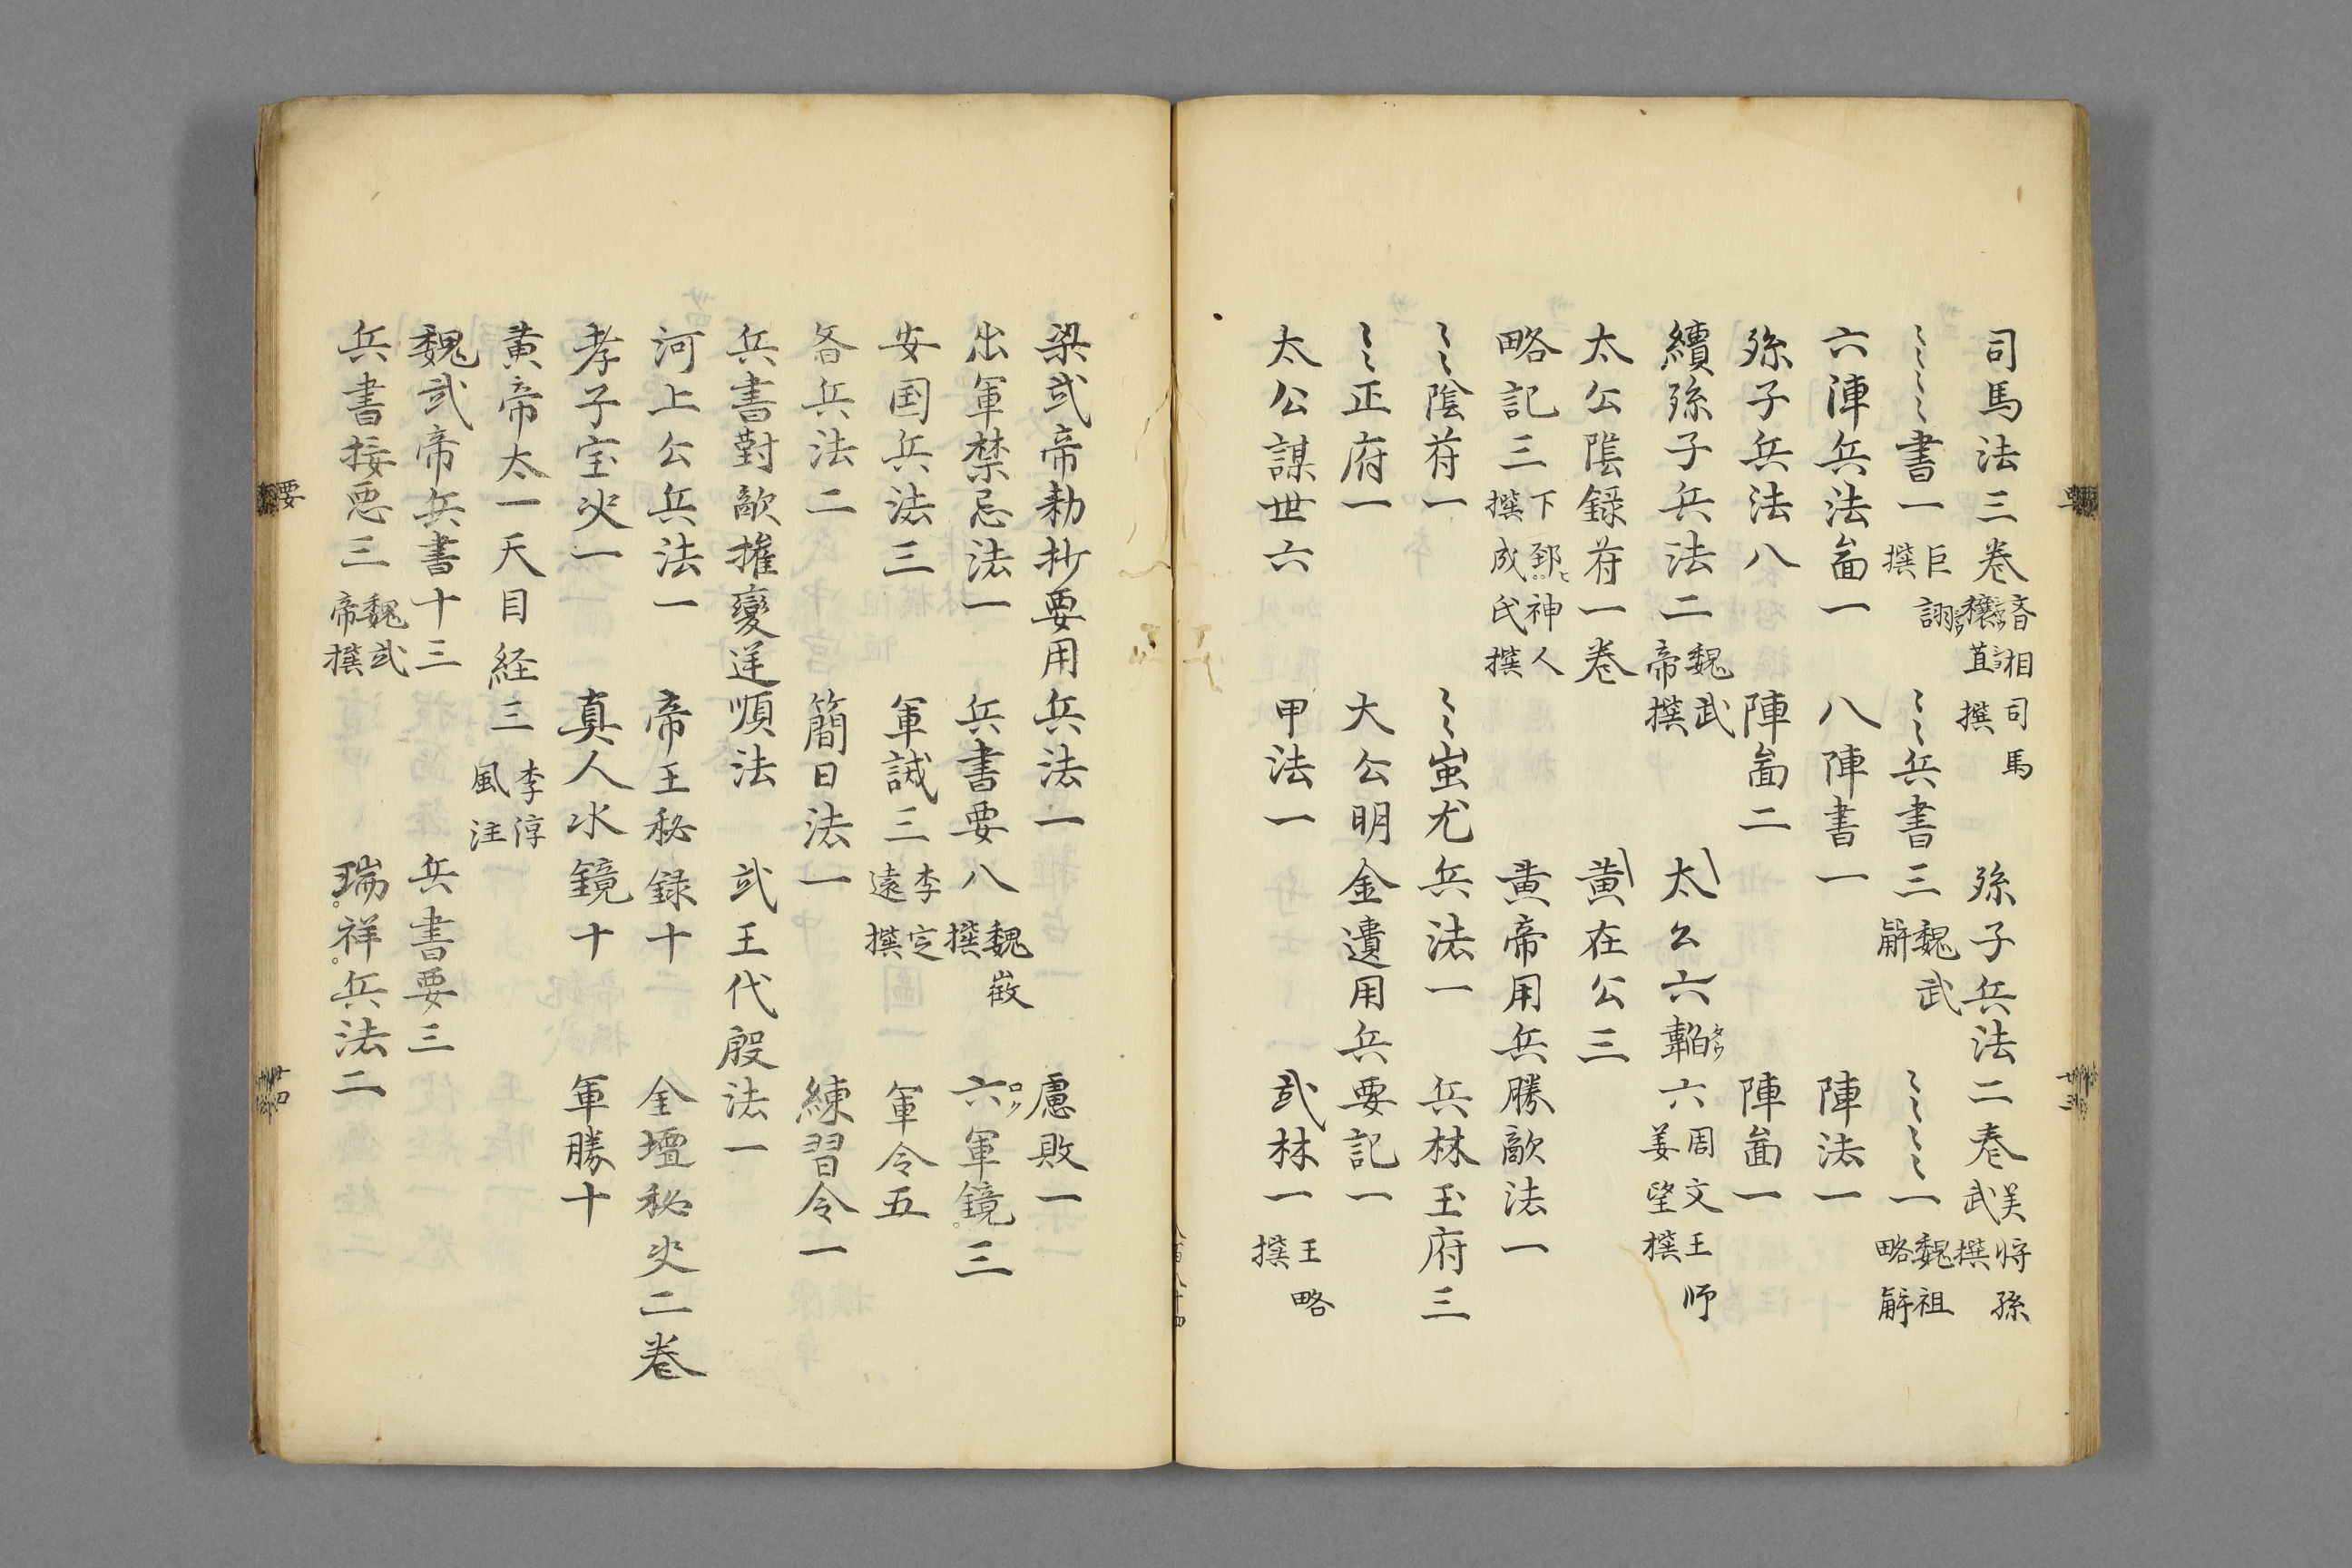 司馬法三巻 斉相司馬穰苴撰 孫子兵法二巻 呉将孫武撰
〻〻〻〻書一 巨詡撰 〻〻兵書三 魏武解 〻〻〻〻一 魏祖略解
六陣兵法畄一 八陣書一 陣法一
孫子兵法八 陣畄二 陣畄一
續孫子兵法二 魏武帝撰 太公六韜六 周文王師姜望撰
太公陰錄符一巻 黄在公三
略記三 下邳神人撰成氏撰 黄帝用兵勝敵法一
〻〻陰符一 〻〻蚩尤兵法一 兵林玉府三
〻〻正府一 大公明金遺用兵要記一
太公謀世六 甲法一 武林一 王略撰
梁武帝勅抄要用兵法一 慮敗一
出軍禁忌法一 兵書要八 魏徴撰 六軍鏡三
安国兵法三 軍誡三 李定遠撰 軍令五
咎兵法二 簡日法一 練習令一
兵書對敵權變逆順法 武王代殷法一
河上公兵法一 帝王秘録十 金壇秘史二巻
孝子宝决一 真人水鏡十 軍勝十
黄帝太一天目経三 李淳風注
魏武帝兵書十三 兵書要三
兵書接要三 魏武帝撰 瑞祥兵法二
要